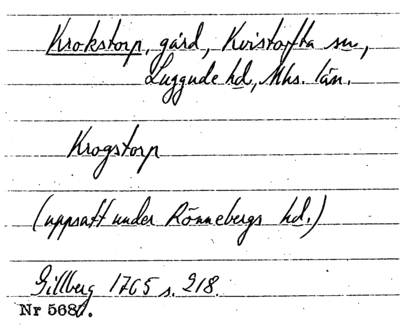 Krokstorp, gård, Kvistofta sn,
Luggude hd, Mhs. län.
Krogstorp
(uppsatt under Rönnebergs hd.)
Gillberg 1765 s. 218.
Nr 568.